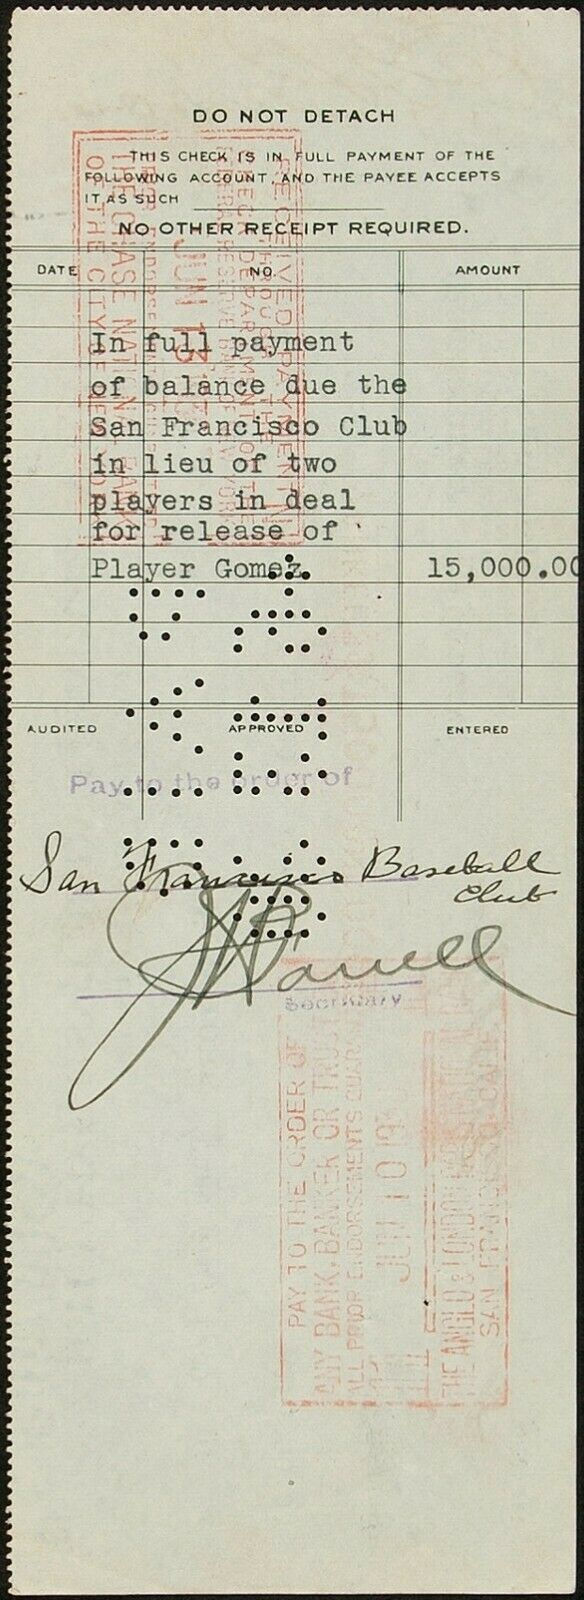 DO NOT DETACH
THIS CHECK IS IN FULL PAYMENT OF THE
FOLLOWING ACCOUNT, AND THE PAYEE ACCEPTS
IT AS SUCH
NO OTHER RECEIPT REQUIRED.
DATE NO. AMOUNT
In full payment
of balance due the
San Francisco Club
in lieu of two
players in deal
for release of
Player Gomez 15,000.00
AUDITED APPROVED ENTERED
Pay to the order of
San Francisco Baseball
Club
Secretary
RECEIVED PAYMENT
THROUGH THE
CHECK DEPARTMENT OF THE
FEDERAL RESERVE BANK OF NEW YORK
JUN 13
THE CHASE NATIONAL BANK
OF THE CITY OF NEW YORK
PAY TO THE ORDER OF
ANY BANK, BANKER OR TRUST
ALL PRIOR ENDORSEMENTS GUAR
JUN 10 19
THE ANGLO & LONDON
SAN FRANCISCO, CALIF.